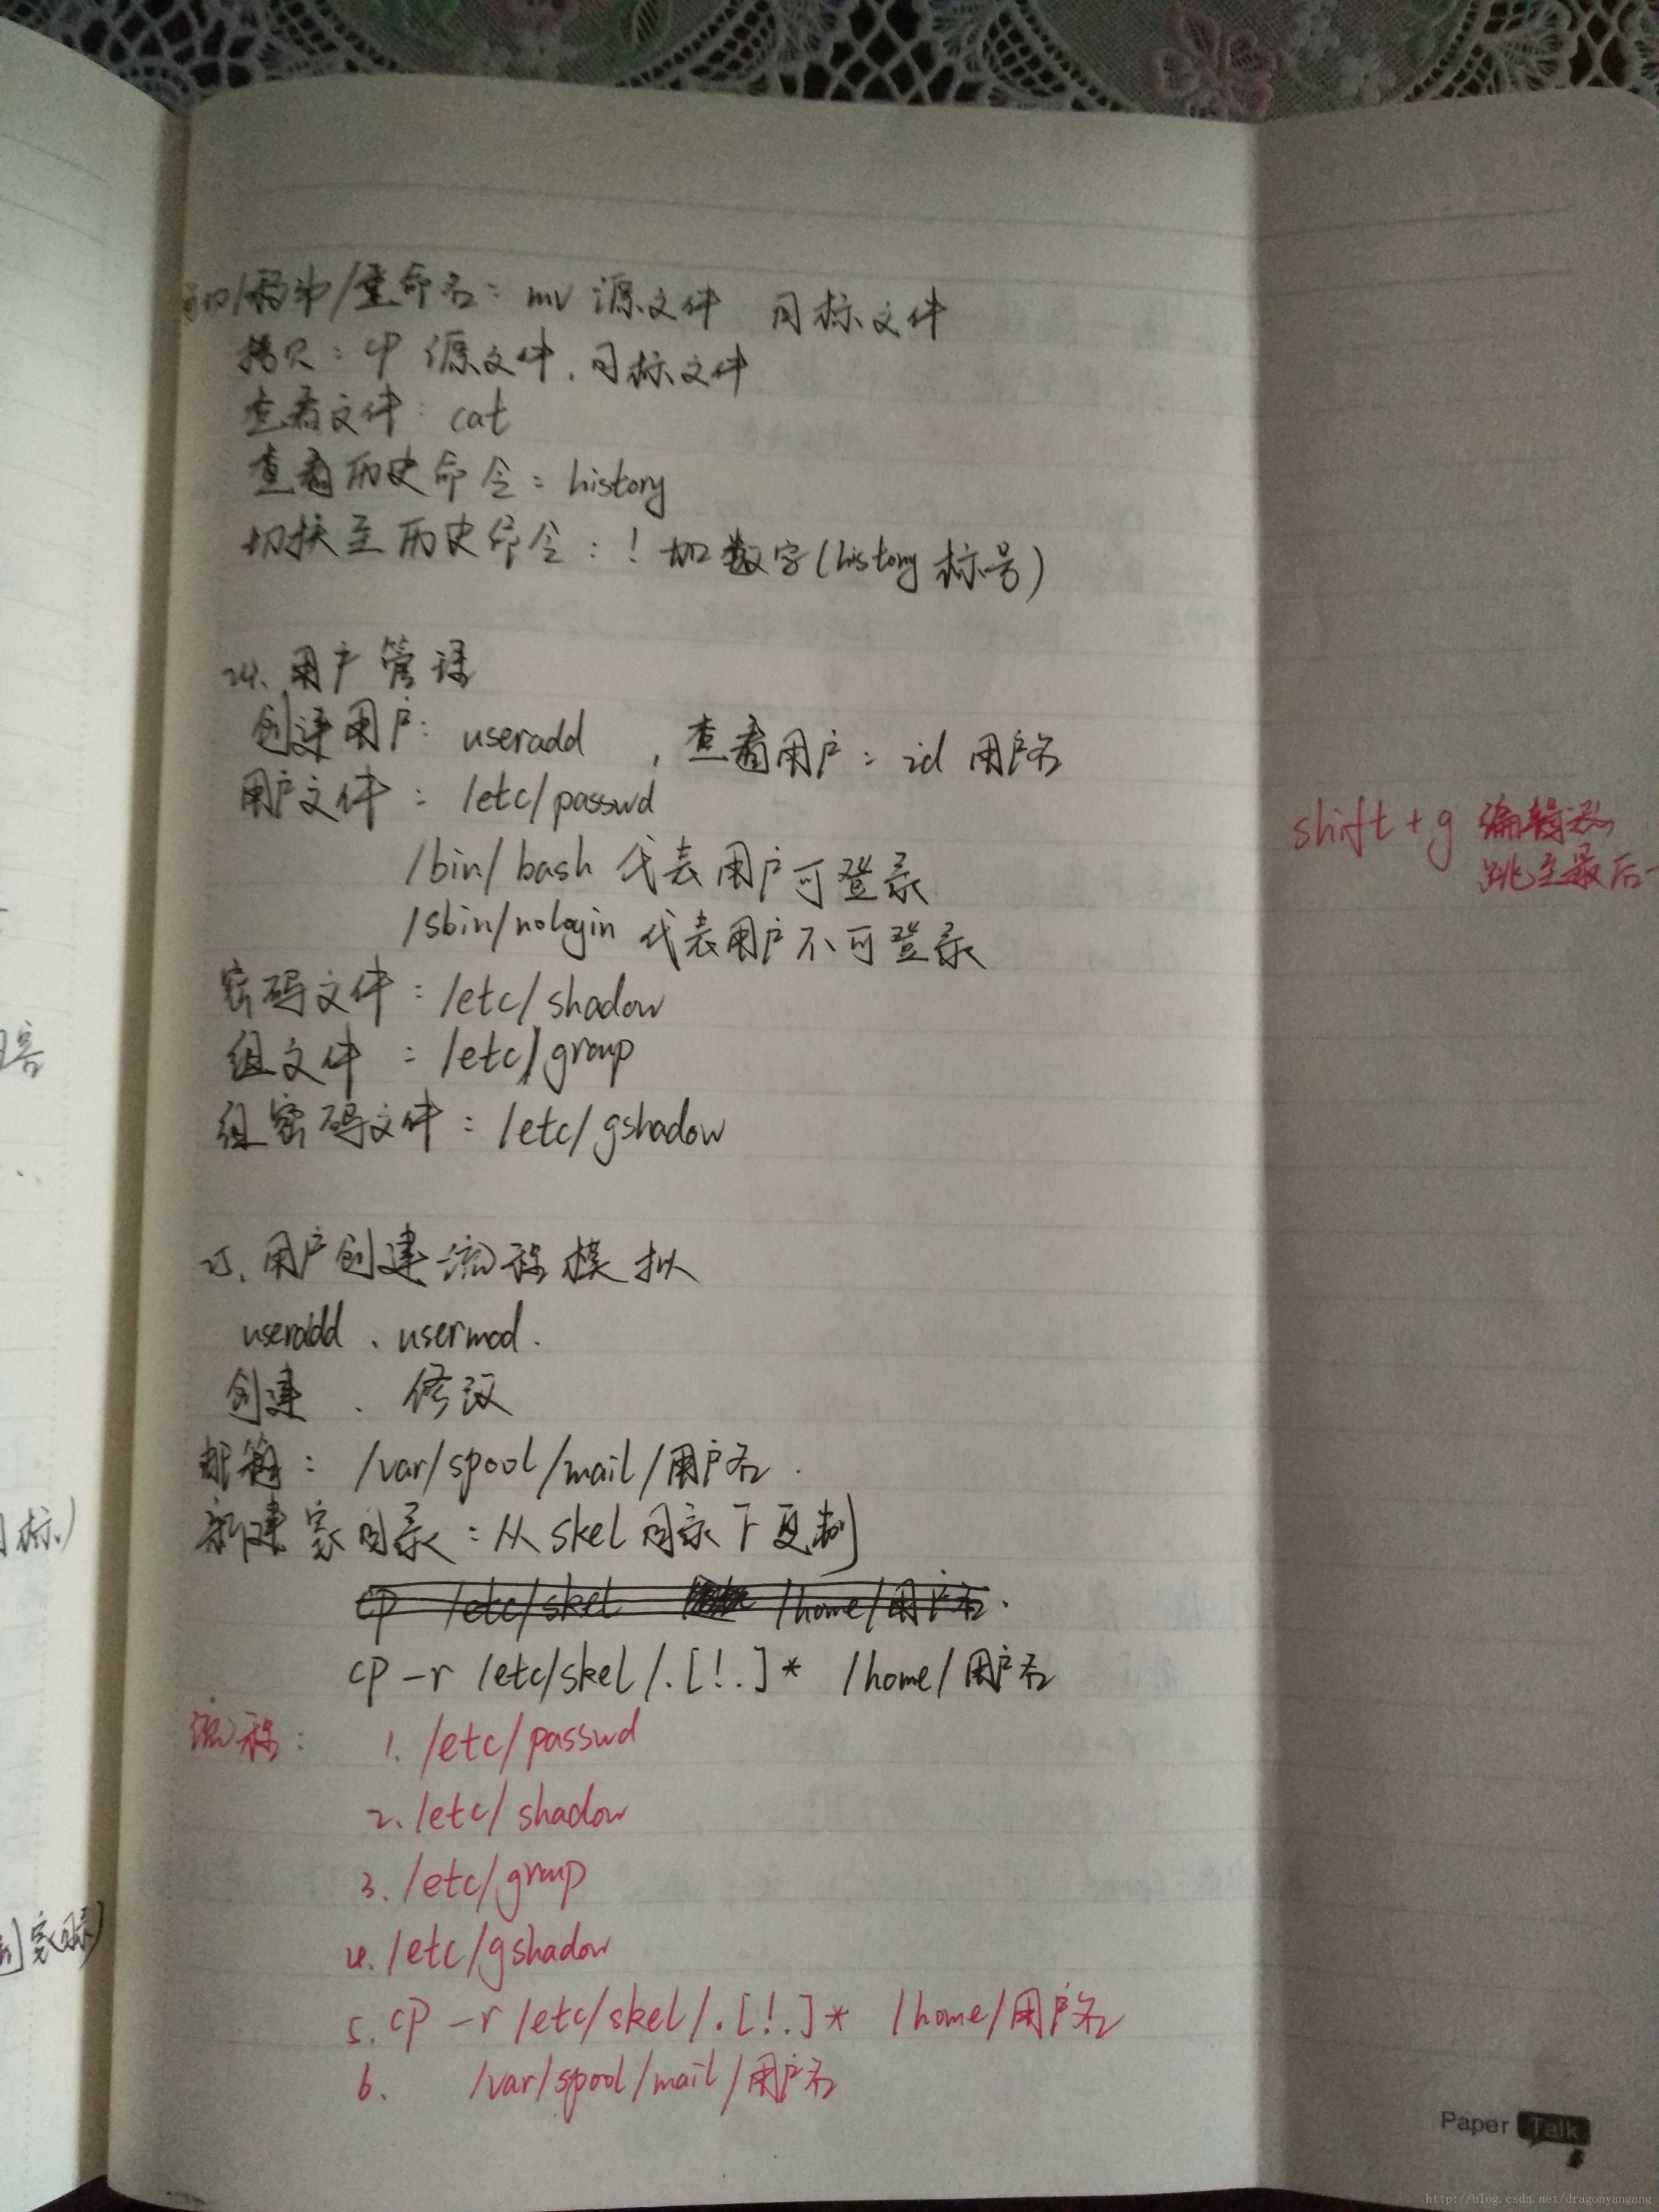 剪切/移动/重命名：mv 源文件 目标文件
拷贝：cp 源文件.目标文件
查看文件：cat
查看历史命令：history
切换至历史命令：！加数字(history标号)
24、用户管理
创建用户：useradd ，查看用户：id 用户名
用户文件：/etc/passwd
/bin/bash 代表用户可登录
/sbin/nologin 代表用户不可登录
密码文件：/etc/shadow
组文件：/etc/group
组密码文件：/etc/gshadow
25、用户创建流程模拟
useradd 、usermod.
创建 、修改
邮箱：/var/spool/mail/用户名.
新建家目录：从skel目录下复制
cp /etc/skel /home/用户名.
cp -r /etc/skel/.[!.]* /home/用户名
流程：1. /etc/passwd
2. /etc/shadow
3. /etc/group
4. /etc/gshadow
5. cp -r /etc/skel/.[!.]* /home/用户名
6. /var/spool/mail/用户名
shift+g 编辑
跳至最后一
目标)
家目录)
Paper Talk
http://blog.csdn.net/dragonyangang